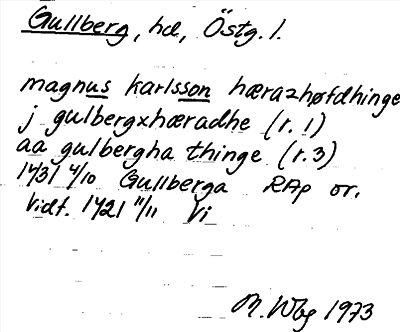 Gullberg, hd, Östg. l.
magnus karlsson hæræzhøfdhinge
j gulbergxhæradhe (r. 1)
aa gulbergha thinge (r. 3)
1431 4/10 Gullberga RAp or.
Vidf. 1421 11/11 Vi
M. Wbg 1973